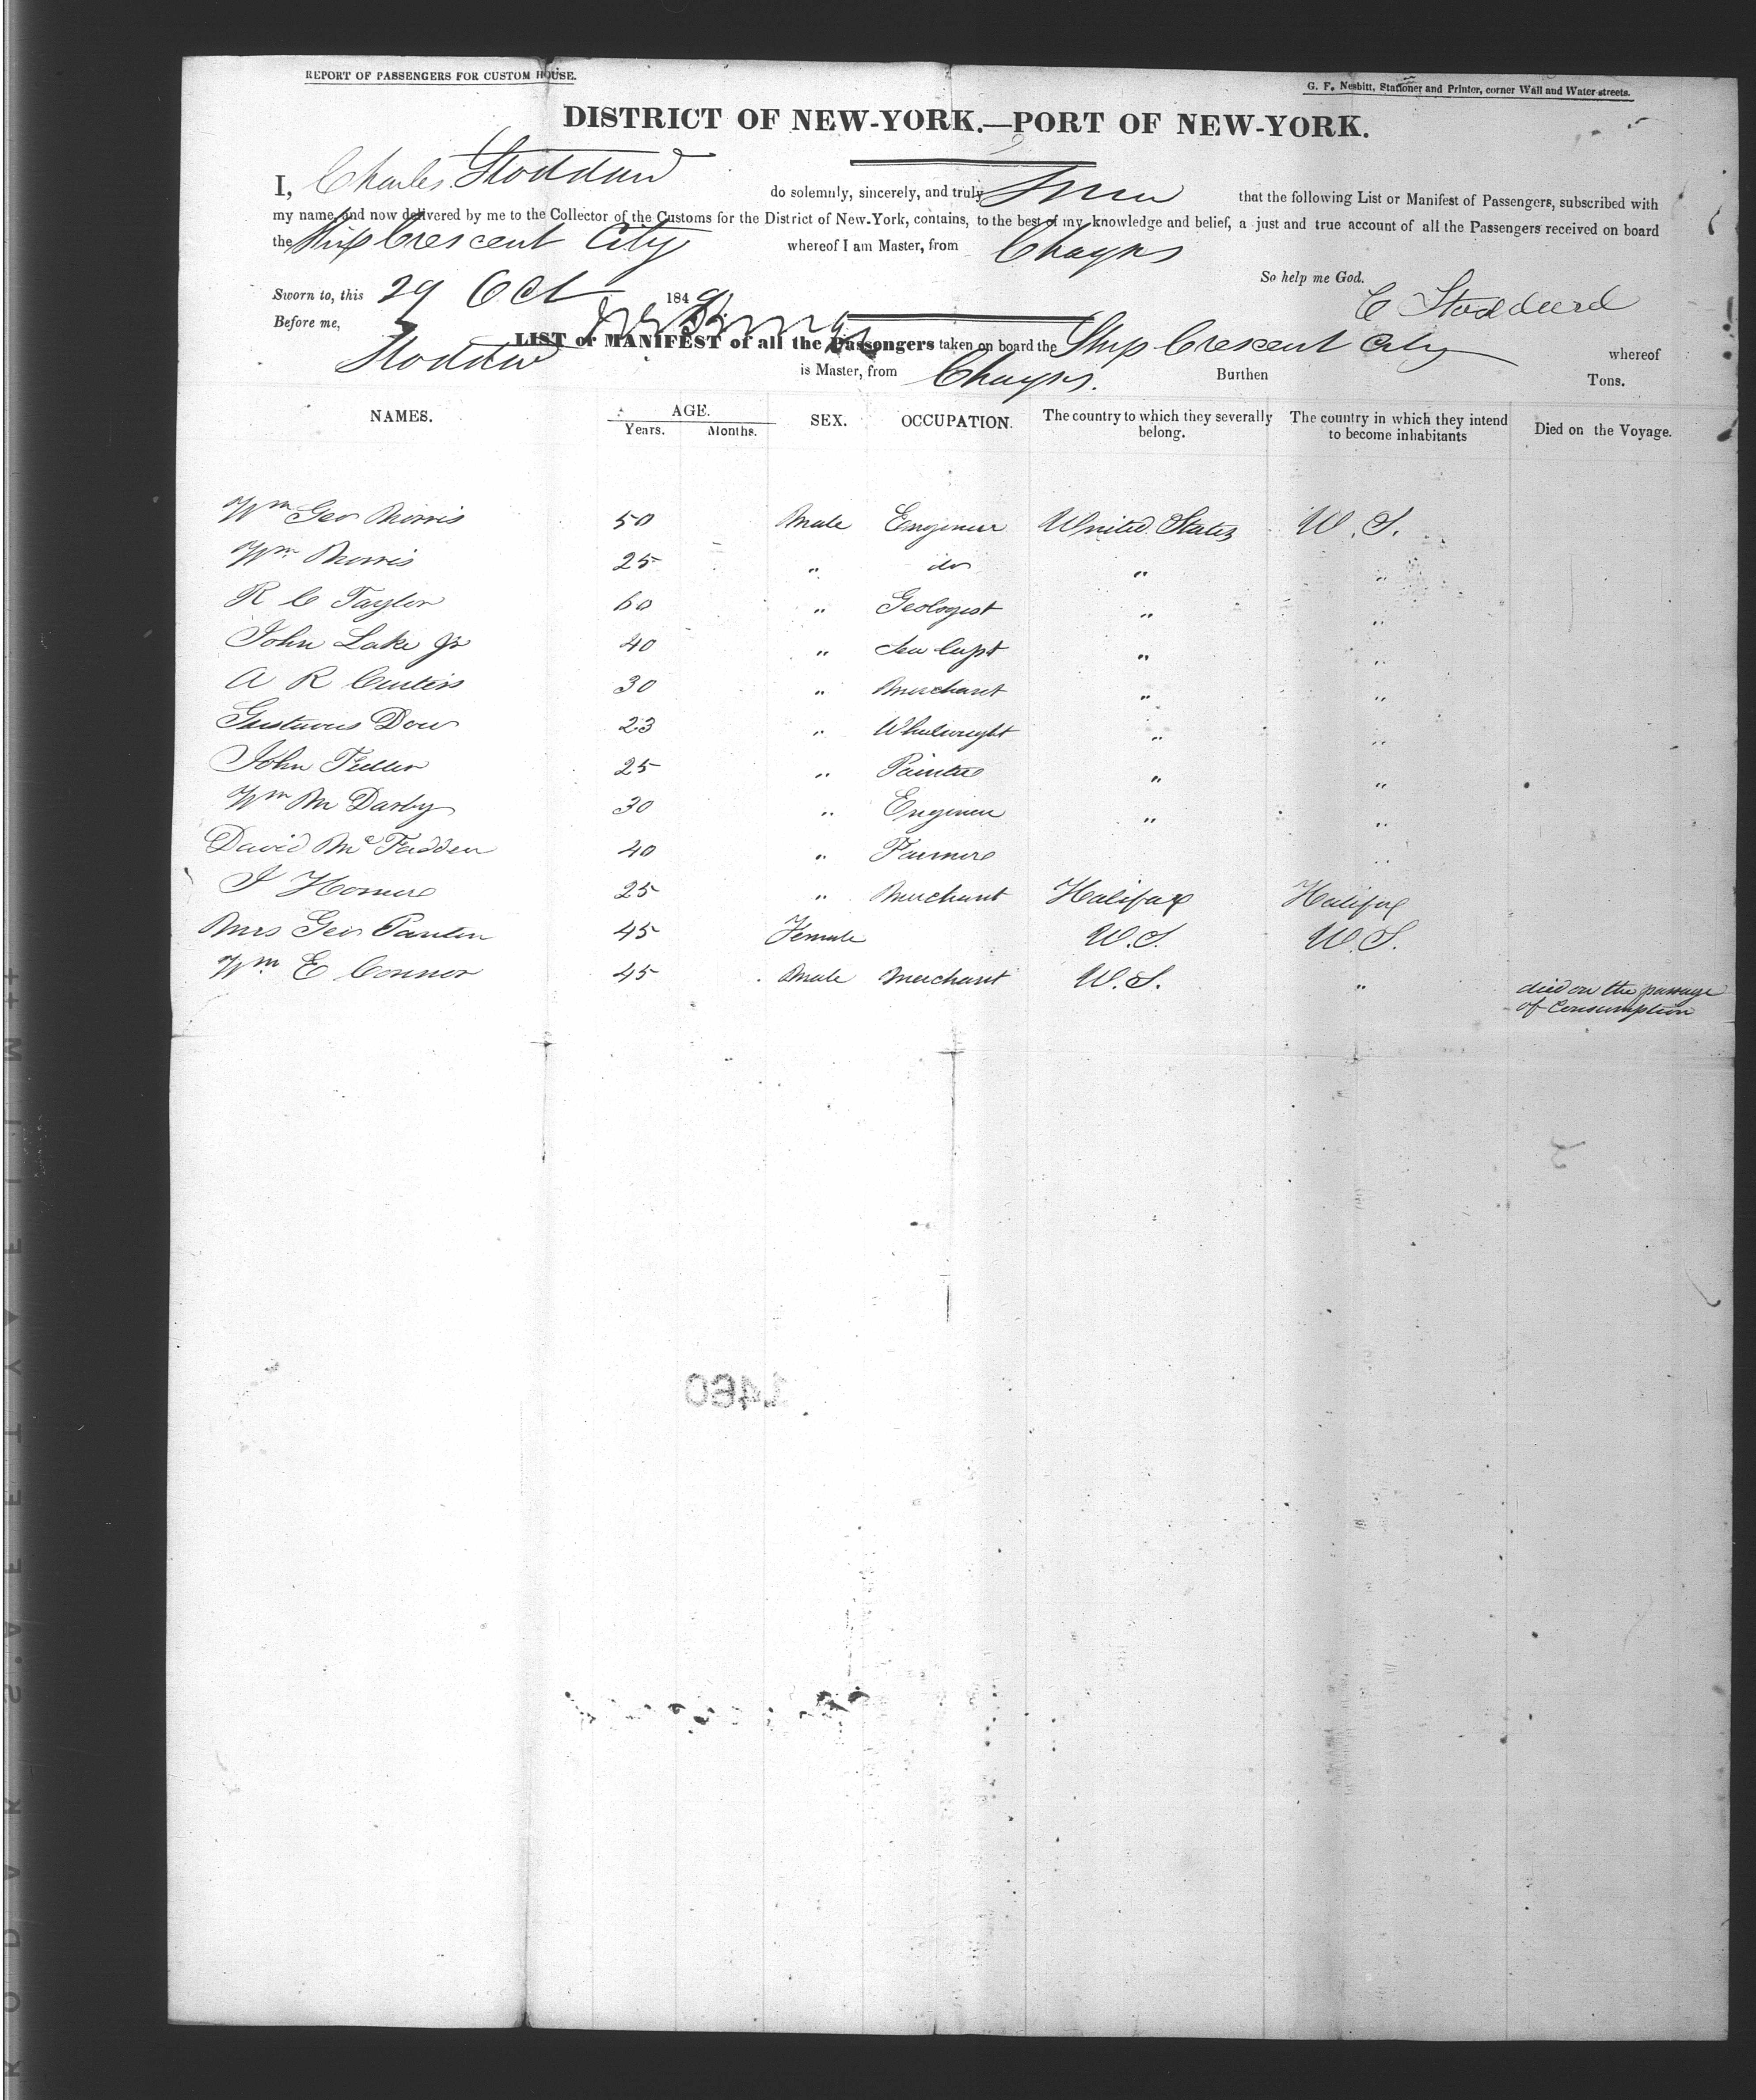 REPORT OF PASSENGERS FOR CUSTOM HOUSE.
G. F. Nesbitt, Stationer and Printer, corner Wall and Water-streets.
DISTRICT OF NEW-YORK.—PORT OF NEW-YORK.
I, Charles Stoddard do solemnly, sincerely, and truly swear that the following List or Manifest of Passengers, subscribed with
my name, and now delivered by me to the Collector of the Customs for the District of New-York, contains, to the best of my knowledge and belief, a just and true account of all the Passengers received on board
the Ship Crescent City whereof I am Master, from Chagres
So help me God.
Sworn to, this 29 Oct 1849
C Stoddard
Before me,
LIST or MANIFEST of all the Passengers taken on board the Ship Crescent City whereof
Stoddard is Master, from Chagres. Burthen Tons.
NAMES. AGE. SEX. OCCUPATION. The country to which they severally belong. The country in which they intend to become inhabitants Died on the Voyage.
Years. Months.
Wm Geo Morris 50 Male Engineer United States U.S.
Wm Morris 25 " do " "
R C Taylor 60 " Geologist " "
John Lake Jr 40 " Sea Capt " "
A R Curtis 30 " Merchant " "
Gustavus Dow 23 " Wheelwright " "
John Fuller 25 " Painter " "
Wm M Darby 30 " Engineer " "
David Mc Fadden 40 " Farmer "
J Homer 25 " Merchant Halifax Halifax
Mrs Geo 45 Female U.S. U.S.
Wm E Connor 45 Male Merchant U.S. " died on the passage
of Consumption
1460